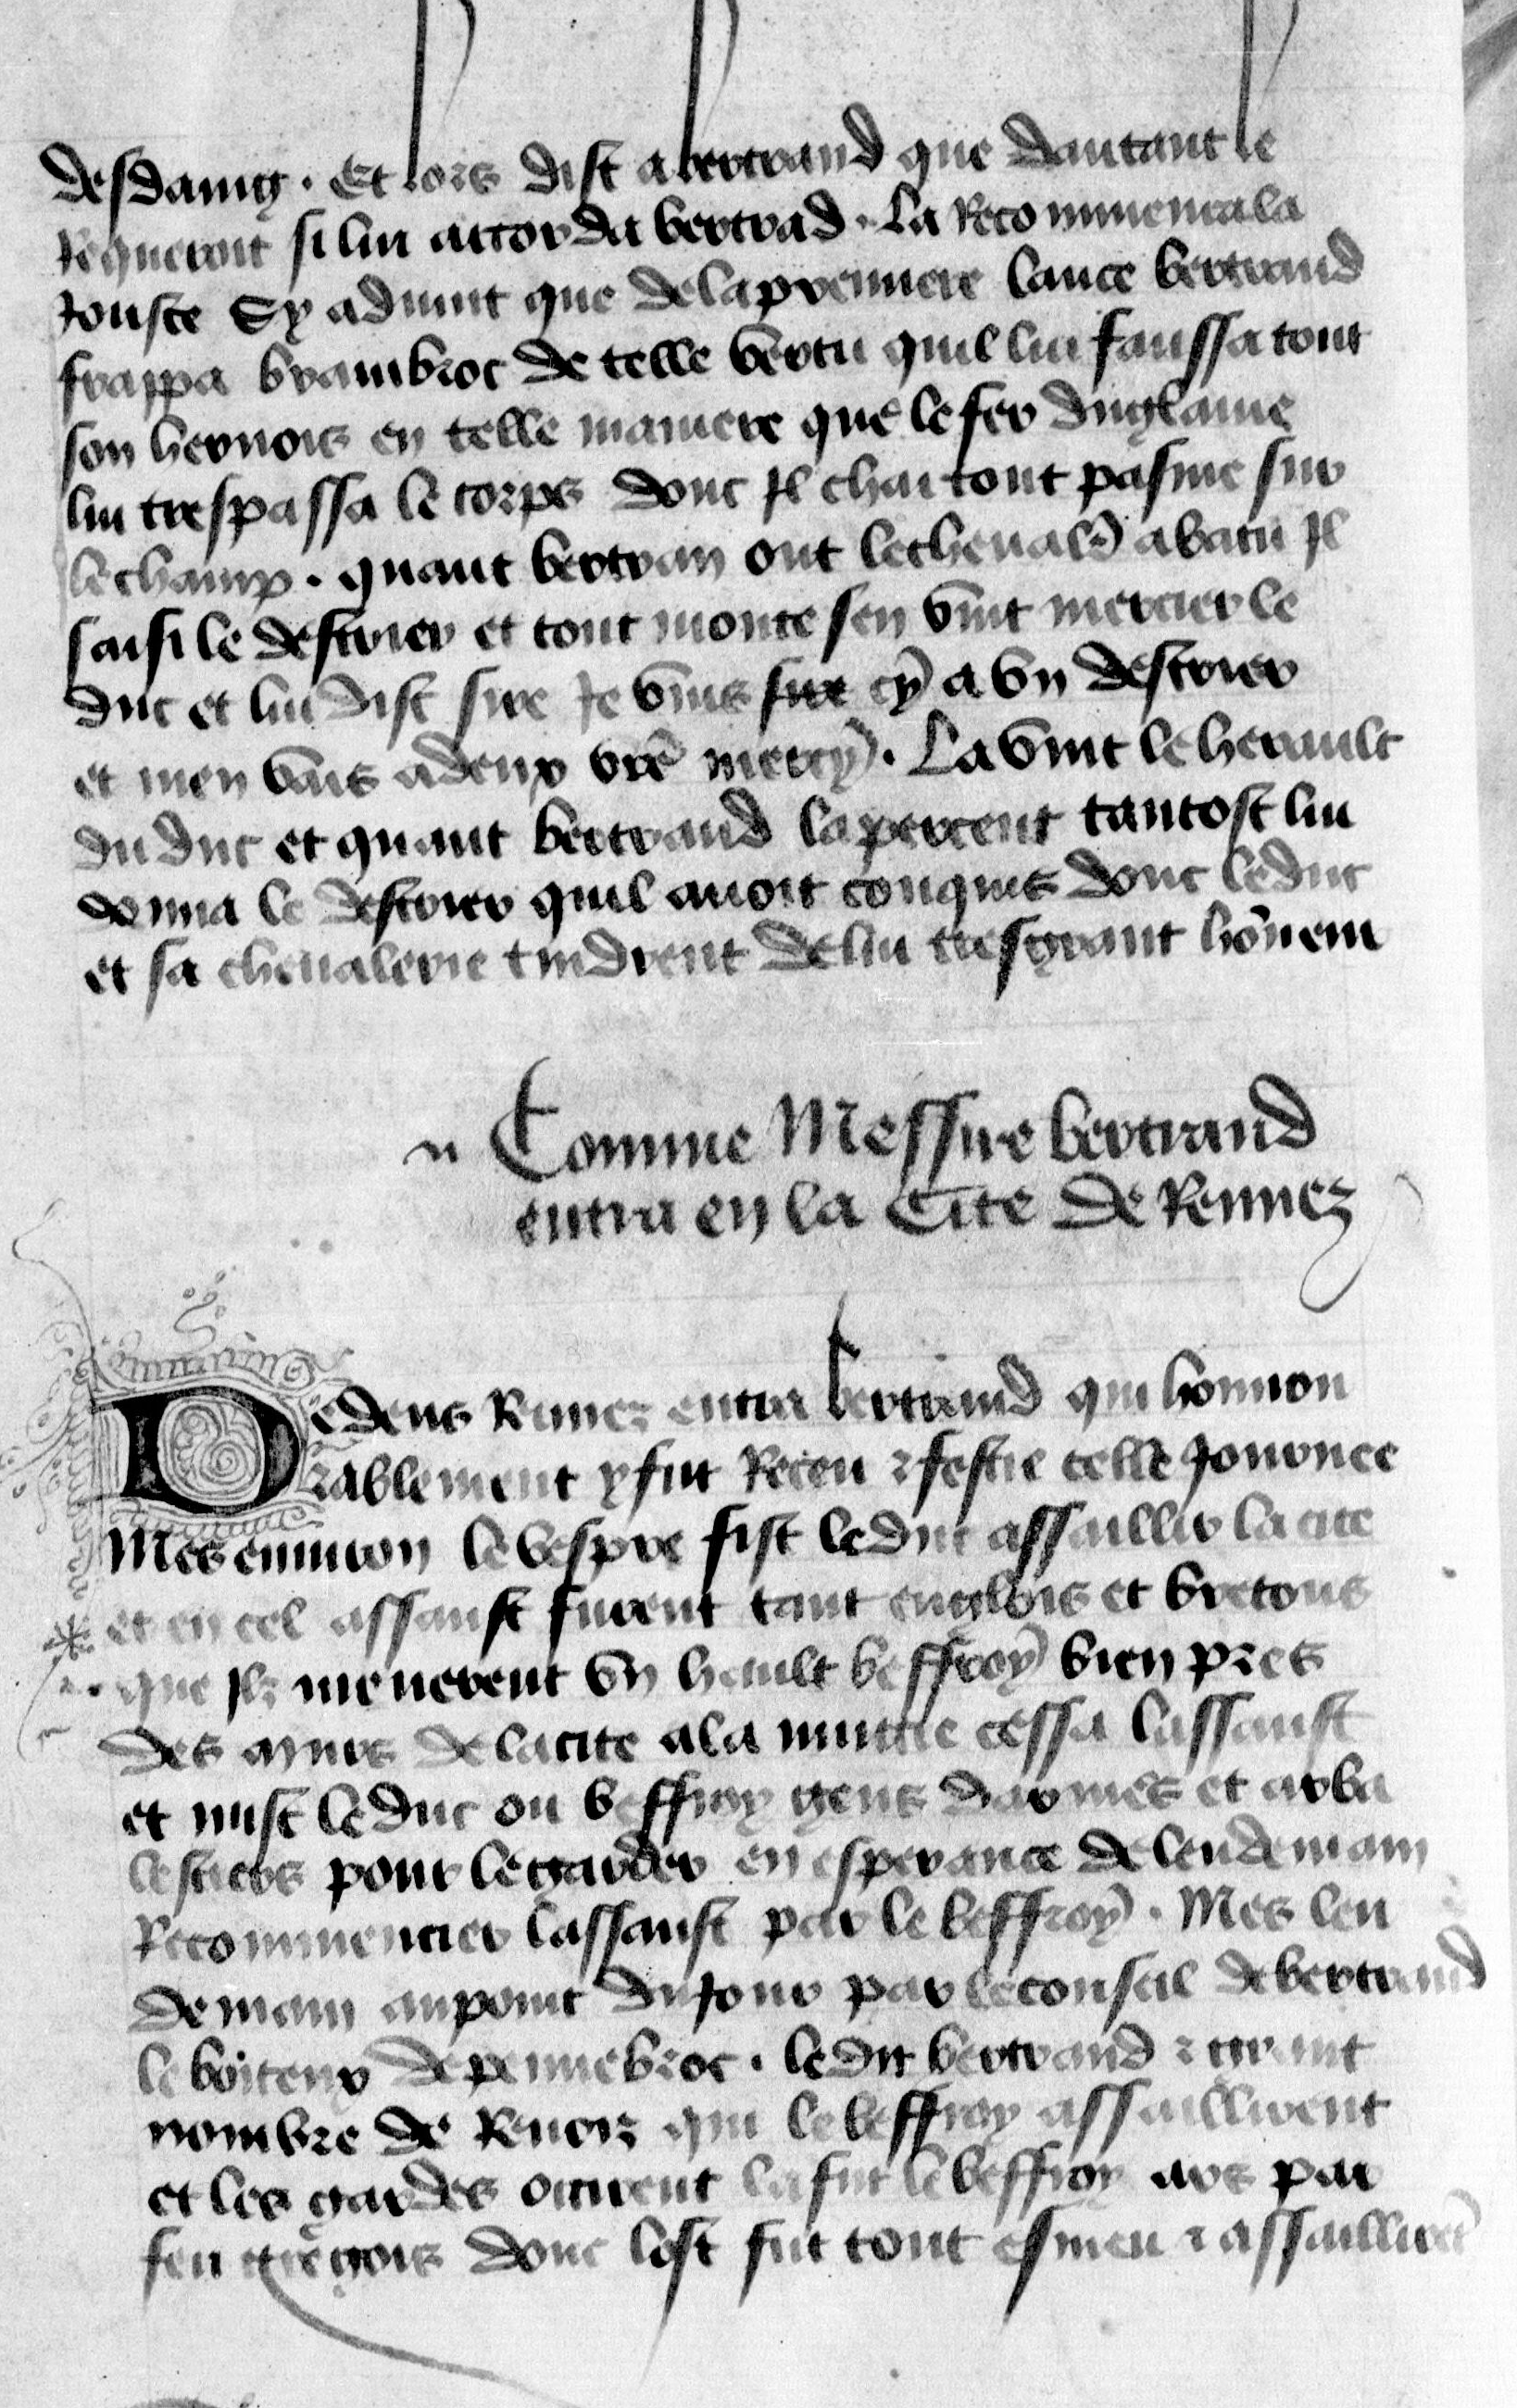 desdaing . Et lors dist a bertrand que dautant le
Requeroit si lui accorda bertrad . La Recommenca la
Jouste Sy aduint que de la premiere lance bertrand
frappa brambroc de telle vertu quil lui faussa tout
son hernois en telle maniere que le fer du glaiue
lui trespassa le corps donc Il chai tout pasme sur
le champ . quant bertran out le cheualr̄ abatu Il
saisi le destrier et tout monte sen vint mercier le
duc et lui dist sire Je vins sur cy a vn destrier
et men vais a deux vr̄e mercy . La vint le herault
du duc et quant bertrand laperceut tantost lui
donna le destrier quil auoit conquis donc le duc
et sa cheualerie tindrent de lui tresgrant hōneur
Comme Messire bertrand
entra en la Cite de Rennez
Dedens Rennez entra bertrand qui honnou
rablement y fut Receu ⁊ festie celle Journee
Mes enuiron le vespre fist le duc assaillir la cite
et en cel assault furent tant englois et bretons
que Ilz menerent vn hault beffroy bien pres
des murs de la cite a la nuittie cessa lassault
et mist le duc ou beffroy gens darmes et arba
lestiers pour le garder en esperance de lendemain
Recommencier lassault par le beffroy . Mes len
demain au point du Jour par le conseil de bertrand
le boiteux de pennebroc . le dit bertrand ⁊ grant
nombre de Renoiz qui le beffroy assaillirent
et les gardes occirent la fut le beffroy ars par
feu gregois donc lost fut tout esmeu ⁊ assaillirēt